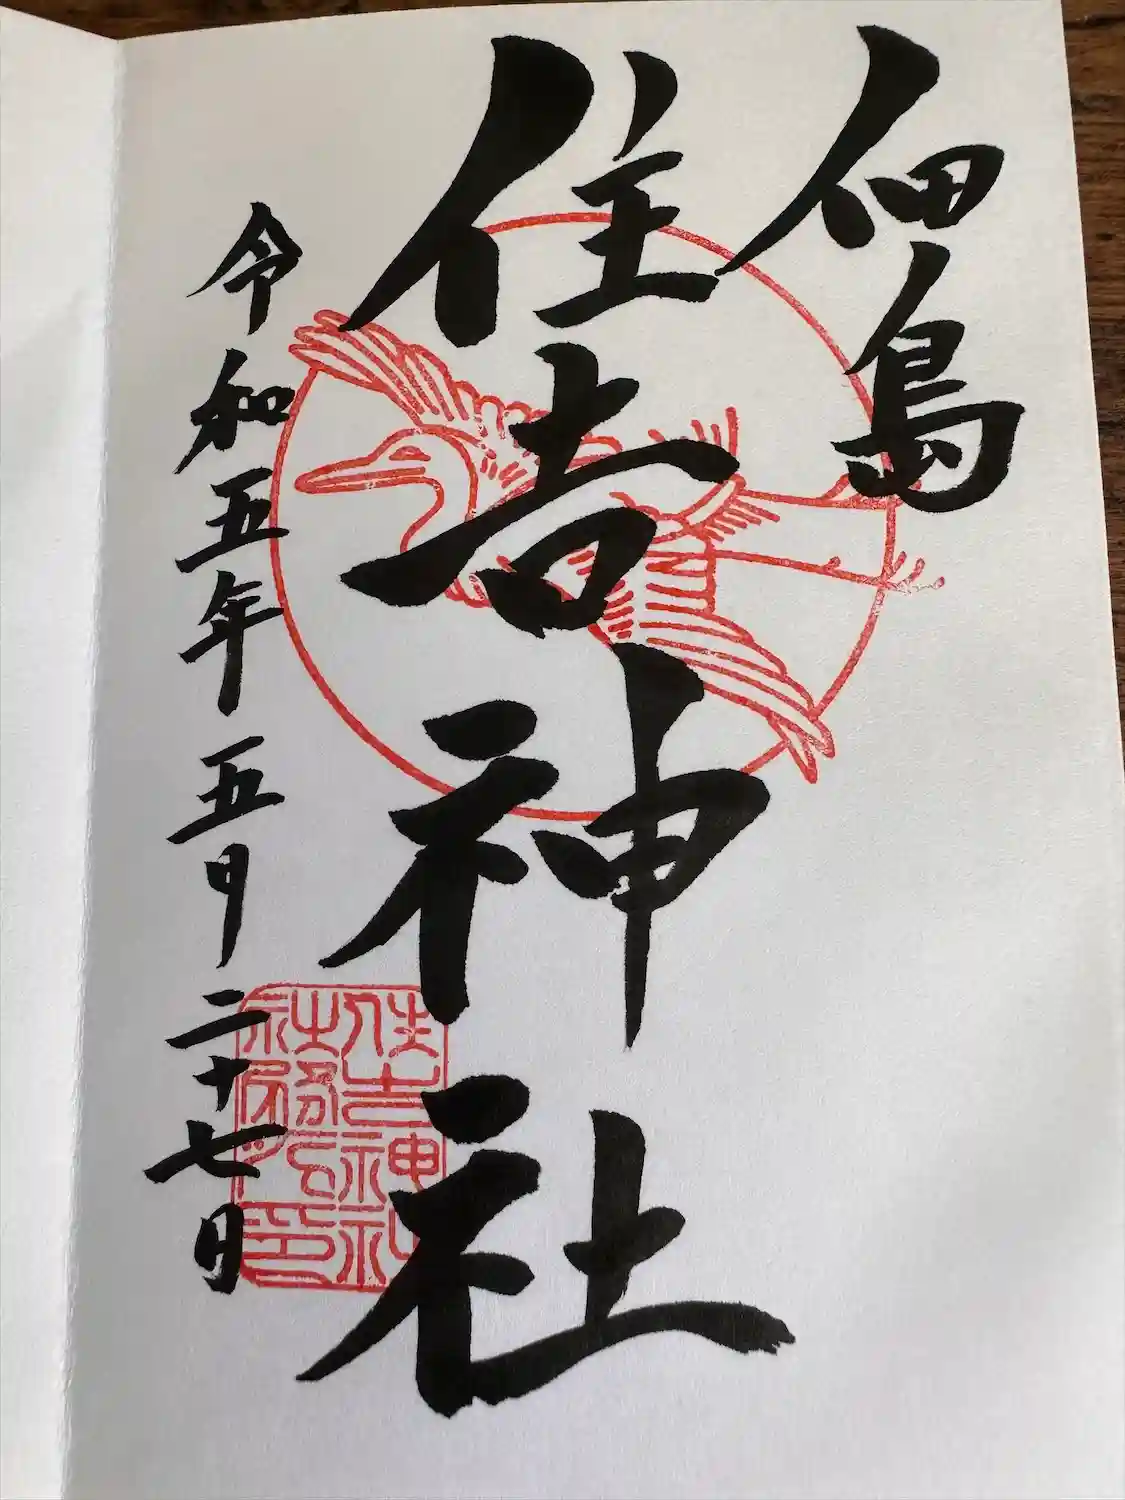 佃島
住吉神社
令和五年五月二十七日
住吉神社
社務所印